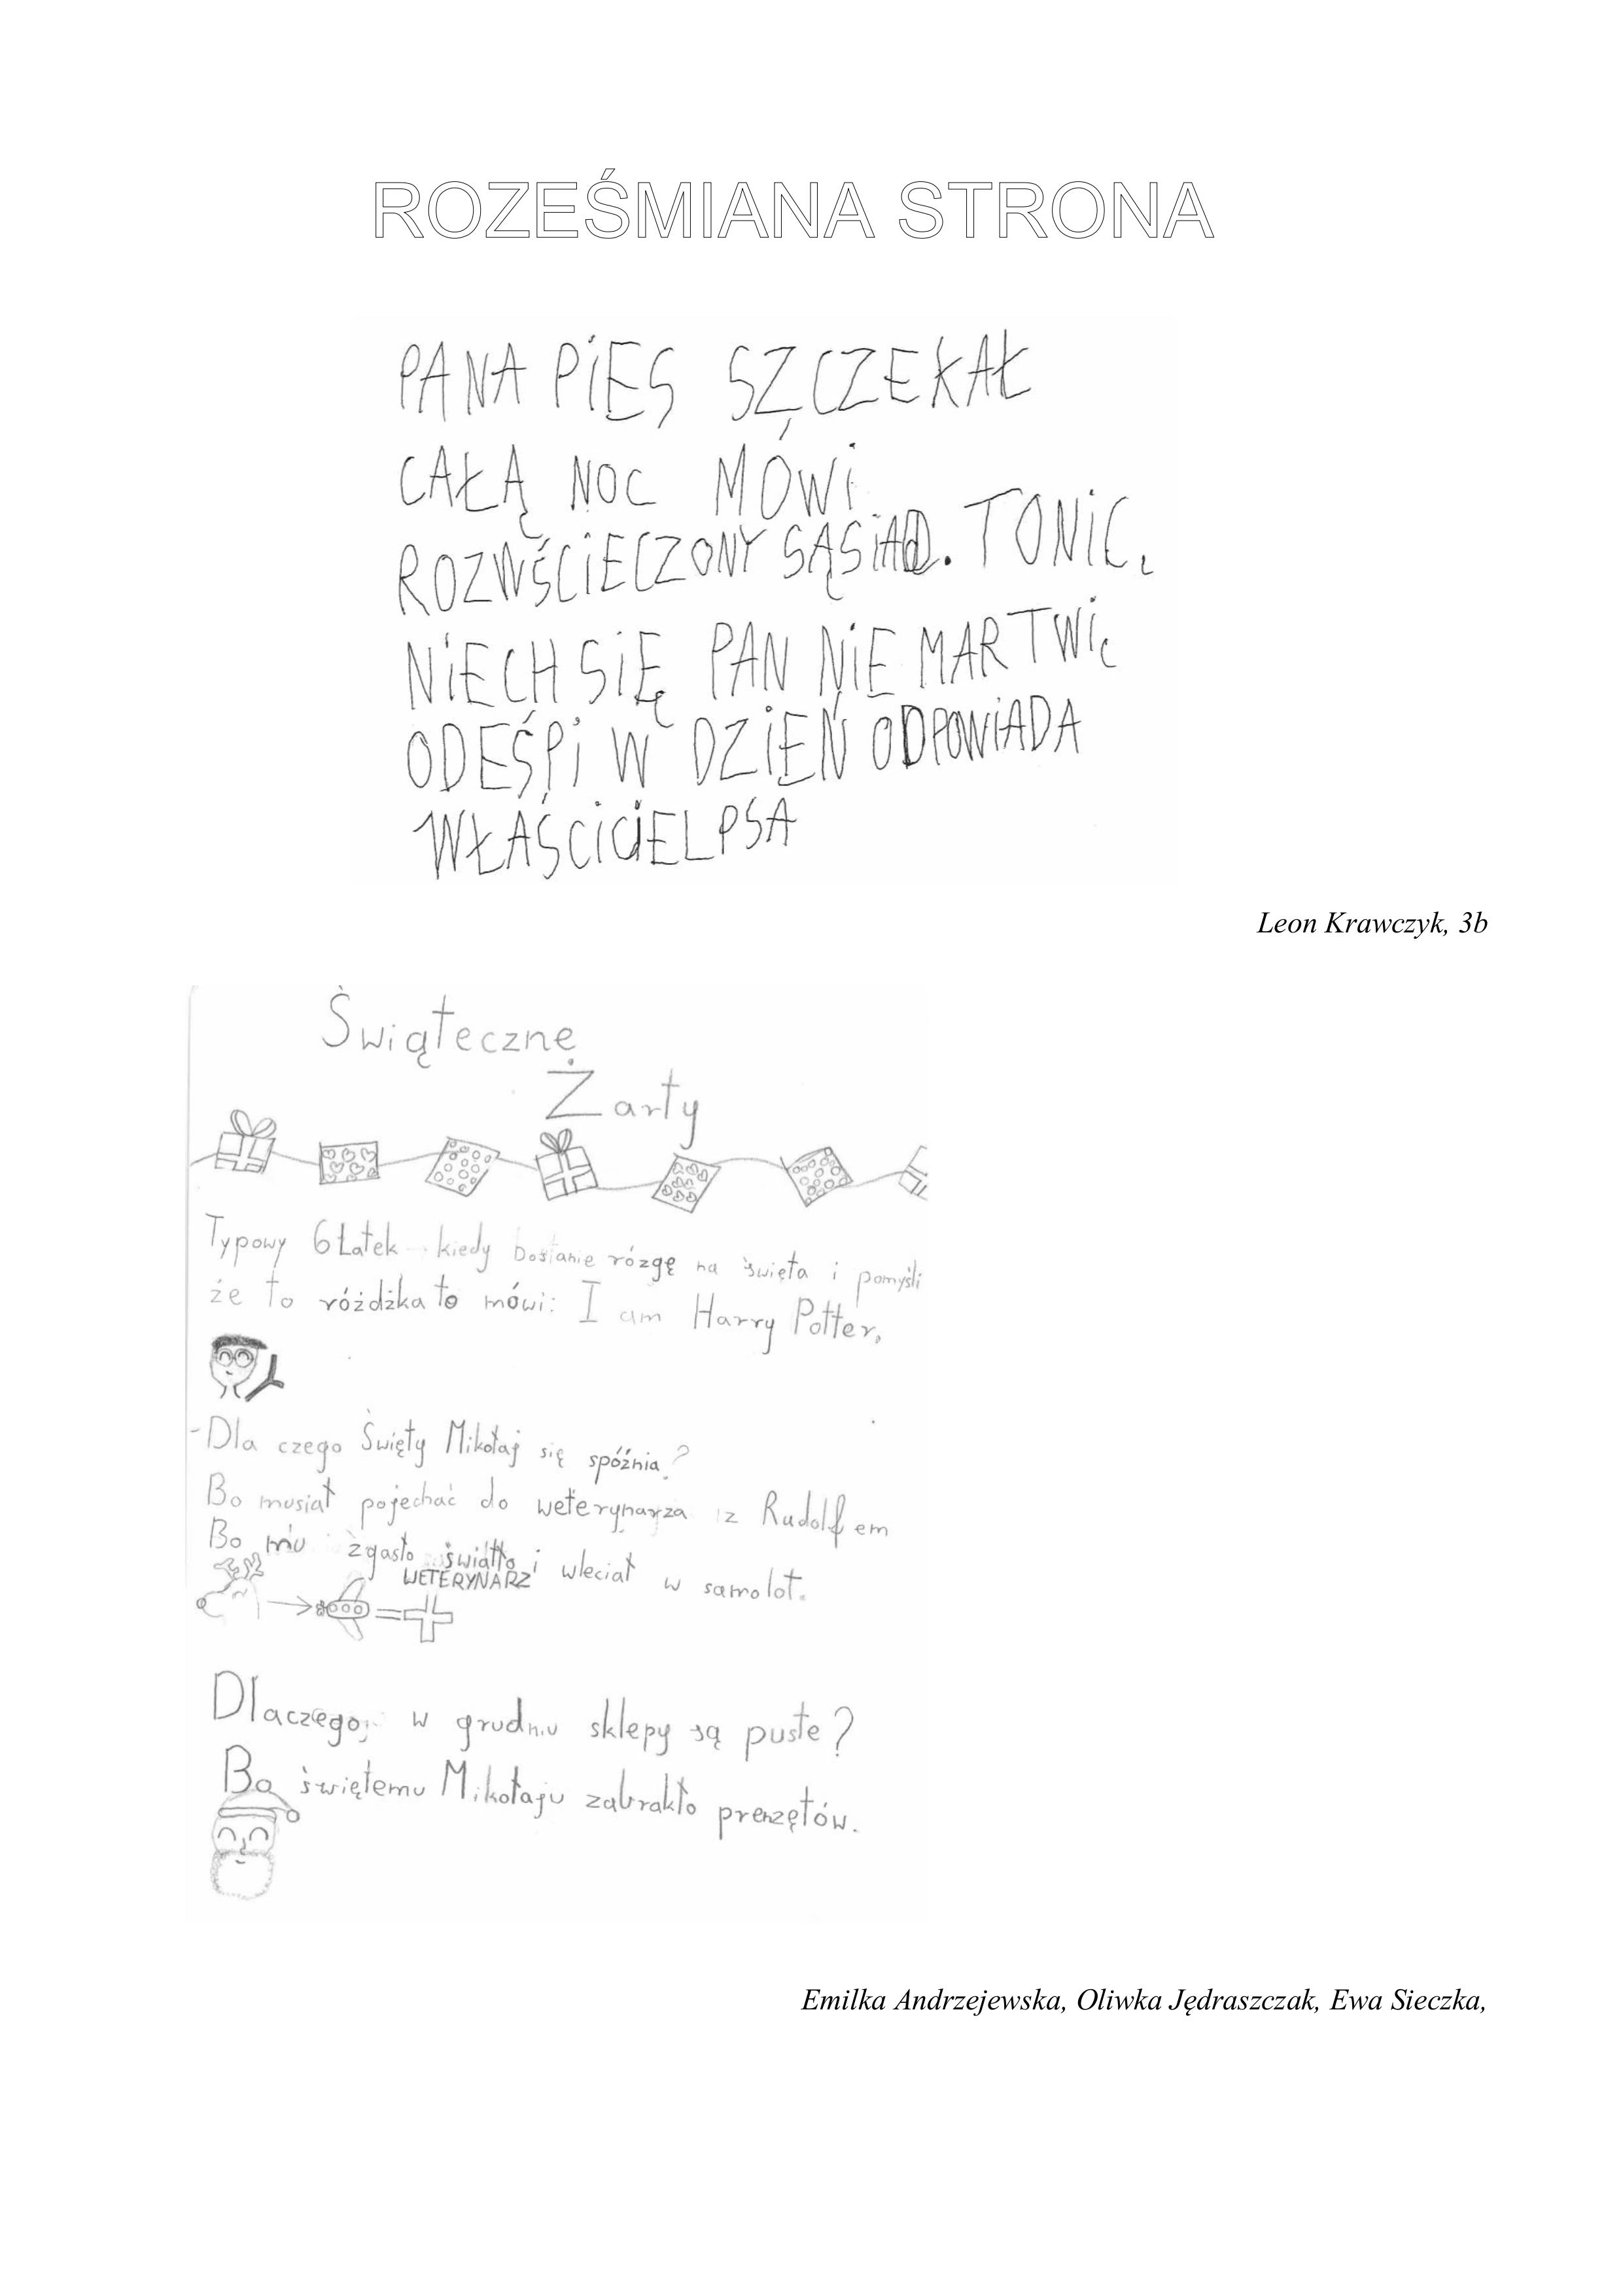 ROZEŚMIANA STRONA
PANA PIES SZCZEKAŁ
CAŁĄ NOC MÓWI
ROZWŚCIECZONY SĄSIAD. TO NIC,
NIECH SIĘ PAN NIE MARTWI,
ODEŚPI W DZIEŃ ODPOWIADA
WŁAŚCICIEL PSA
Leon Krawczyk, 3b
Świąteczne
Żarty
Typowy 6 Łatek kiedy dostanie rózgę na święta i pomyśli
że to różdżka to mówi: I am Harry Potter,
-Dla czego Święty Mikołaj się spóźnia?
Bo musiał pojechać do weterynarza z Rudolfem
Bo mu zgasło światło i wleciał w samolot.
WETERYNARZ
Dlaczego w grudniu sklepy są puste?
Bo świętemu Mikołaju zabrakło prezętów.
Emilka Andrzejewska, Oliwka Jędraszczak, Ewa Sieczka,